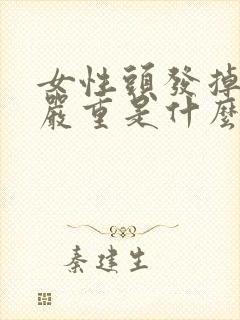 女性頭發掉
嚴重是什麼
秦建生